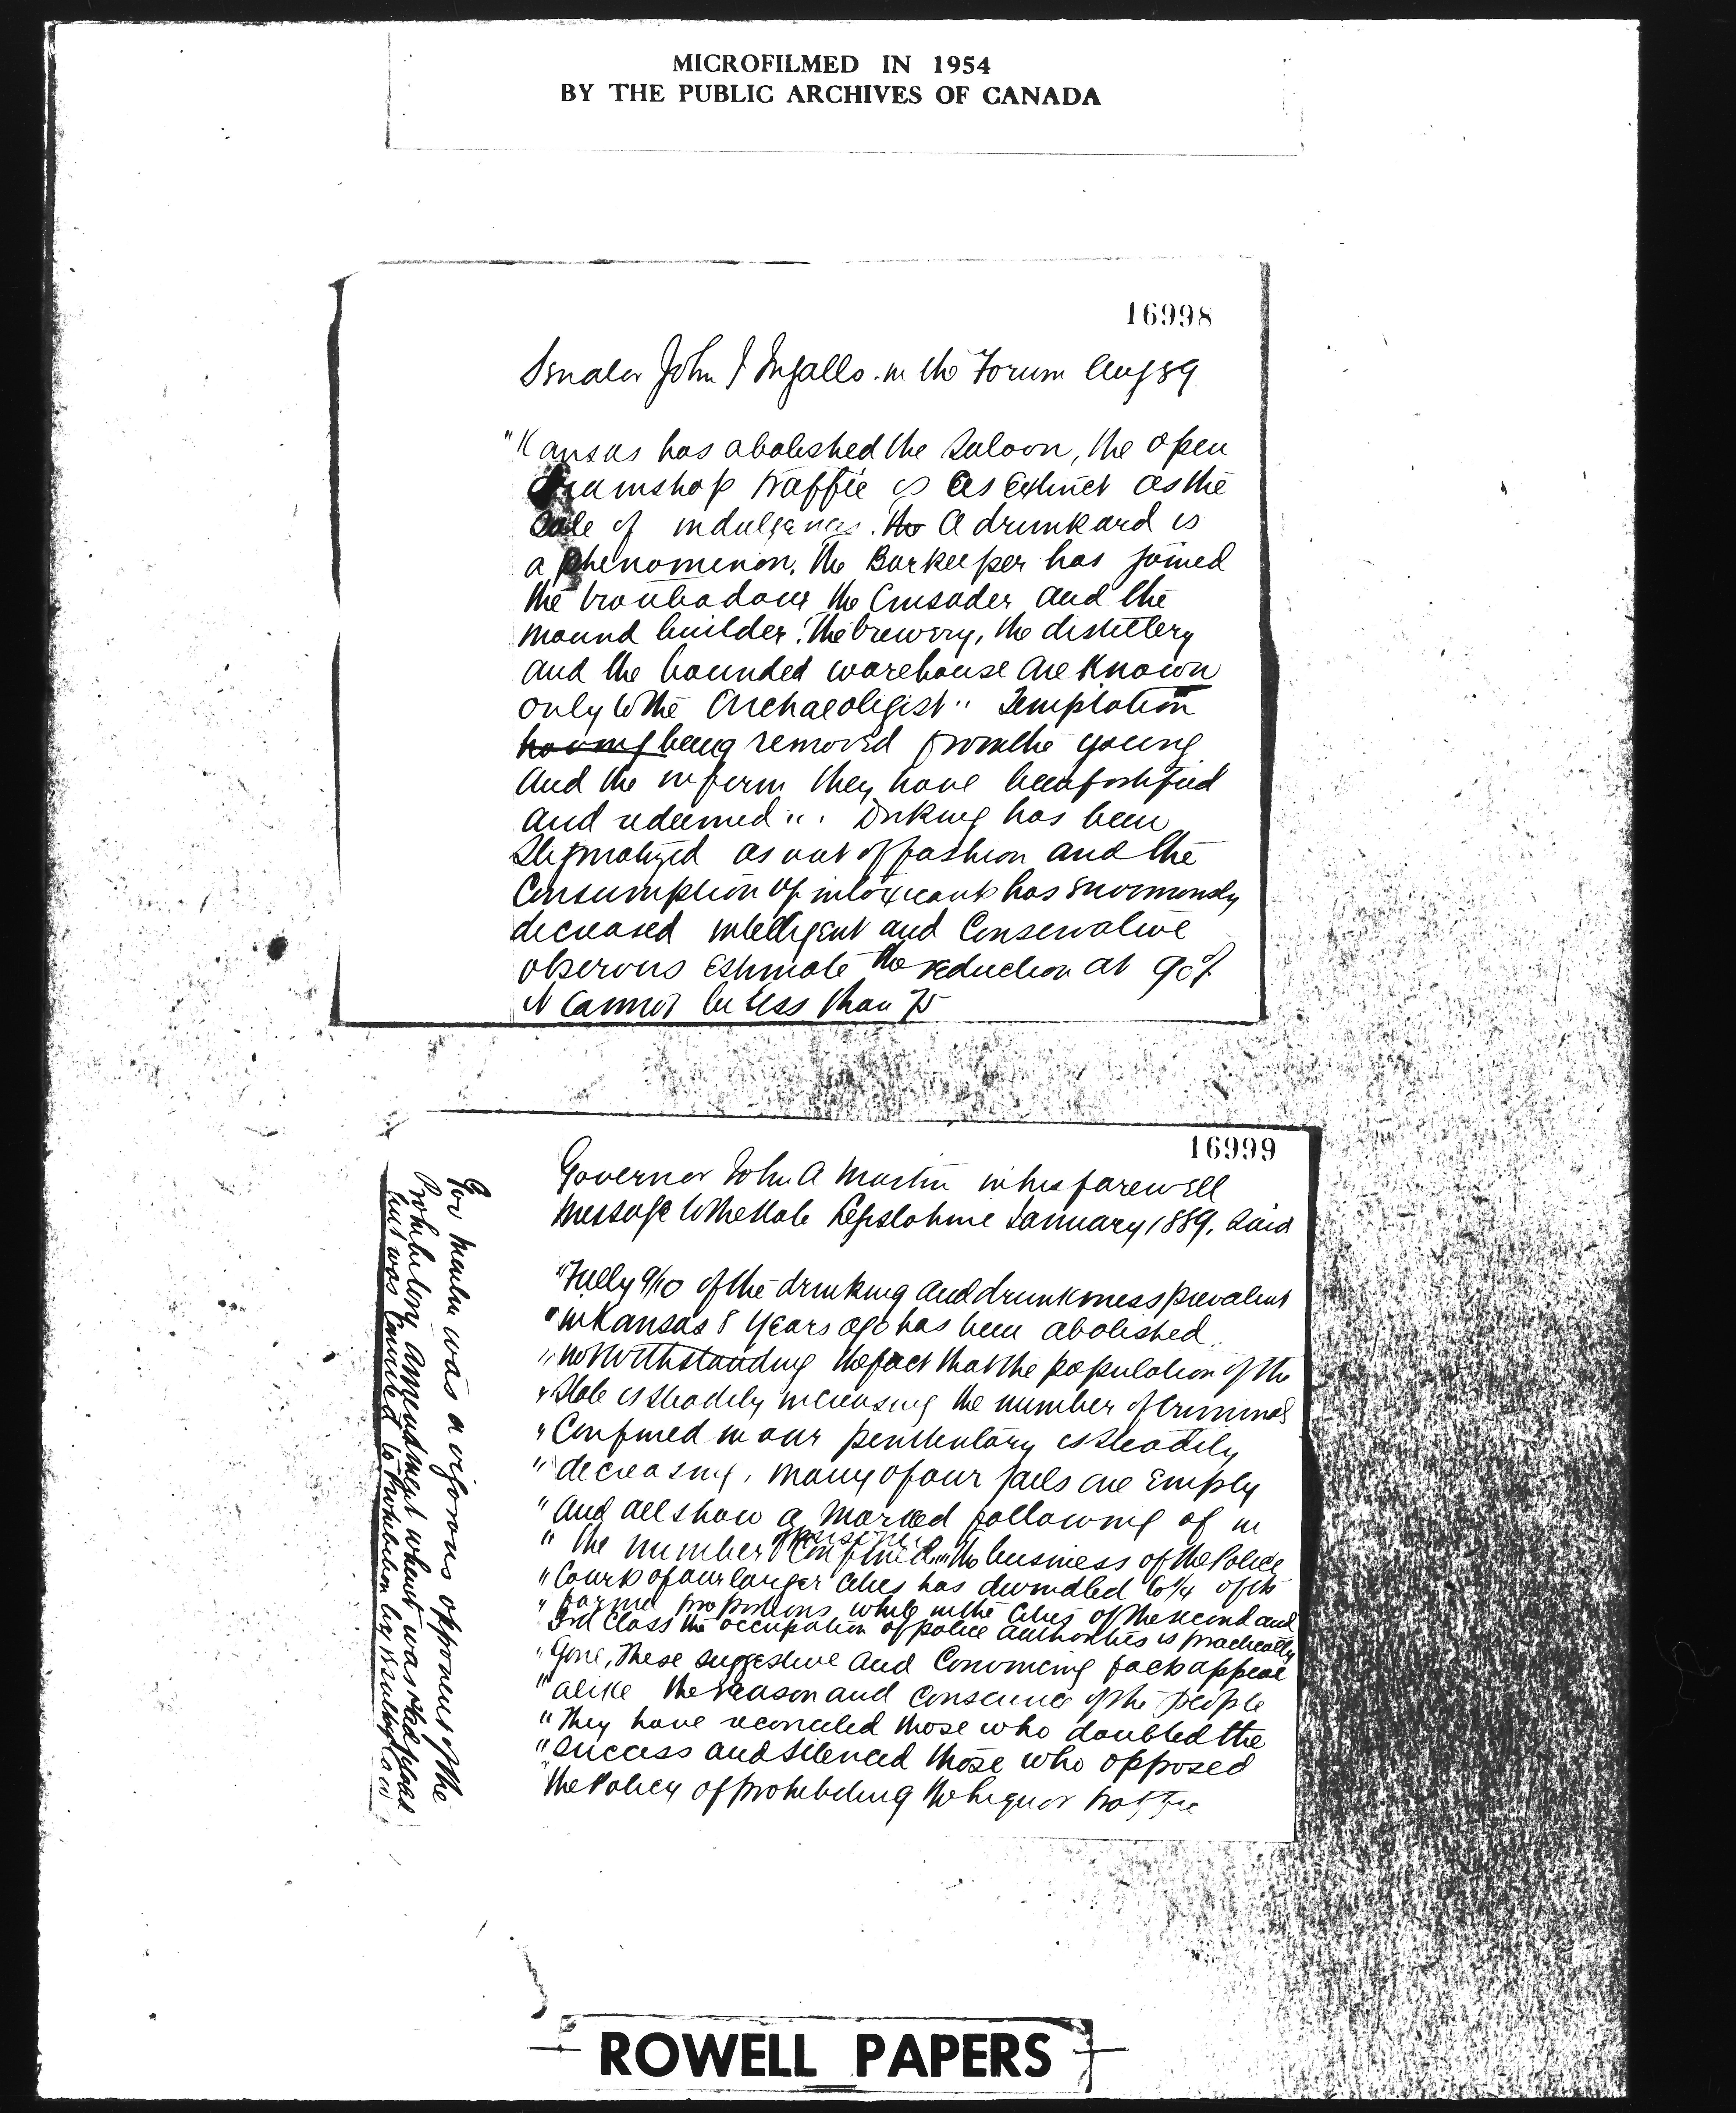 MICROFILMED IN 1954
BY THE PUBLIC ARCHIVES OF CANADA
16998
Senator John J Ingalls in the Forum Aug 89
"Kansas has abolished the Saloon, the open
dramshop traffic is as extinct as the
sale of indulgences. The A drunkard is
a phenomenon. The Barkeeper has joined
the troubadour the Crusader and the
mound builder. The brewery, the distillery
and the bounded warehouse are known
only to the Archaeologist" Temptation
having being removed from the young
and the infirm they have been fortified
and redeemed". Drinking has been
stigmatized as out of fashion and the
Consumption of intoxicants has enormously
decreased intelligent and Conservative
observers Estimate the reduction at 90%
it cannot be less than 75
16999
Governor John A Martin in his farewell
message to the State Legislature January 1889. Said
"Fully 9/10 of the drinking and drunkenness prevalent
"in Kansas 8 years ago has been abolished.
"notwithstanding the fact that the population of the
"State is steadily increasing the number of criminals
"Confined in our penitentiary is steadily
"decreasing. Many of our jails are Empty
"and all show a marked following of in
"the number of prisoners confined. The business of the Police
"Courts of our larger cities has dwindled to 1/4 of its
"former proportions while in the cities of the second and
3rd Class the occupation of police authorities is practically
"Gone, These suggestive and Convincing facts appeal
"alike the reason and conscience of the people
"They have reconciled those who doubted the
"success and silenced those who opposed
"the Policy of prohibiting the liquor traffic
Gov Martin was a vigorous opponent of the
Prohibitory Amendment when it was
but was converted to Prohibition by
ROWELL PAPERS